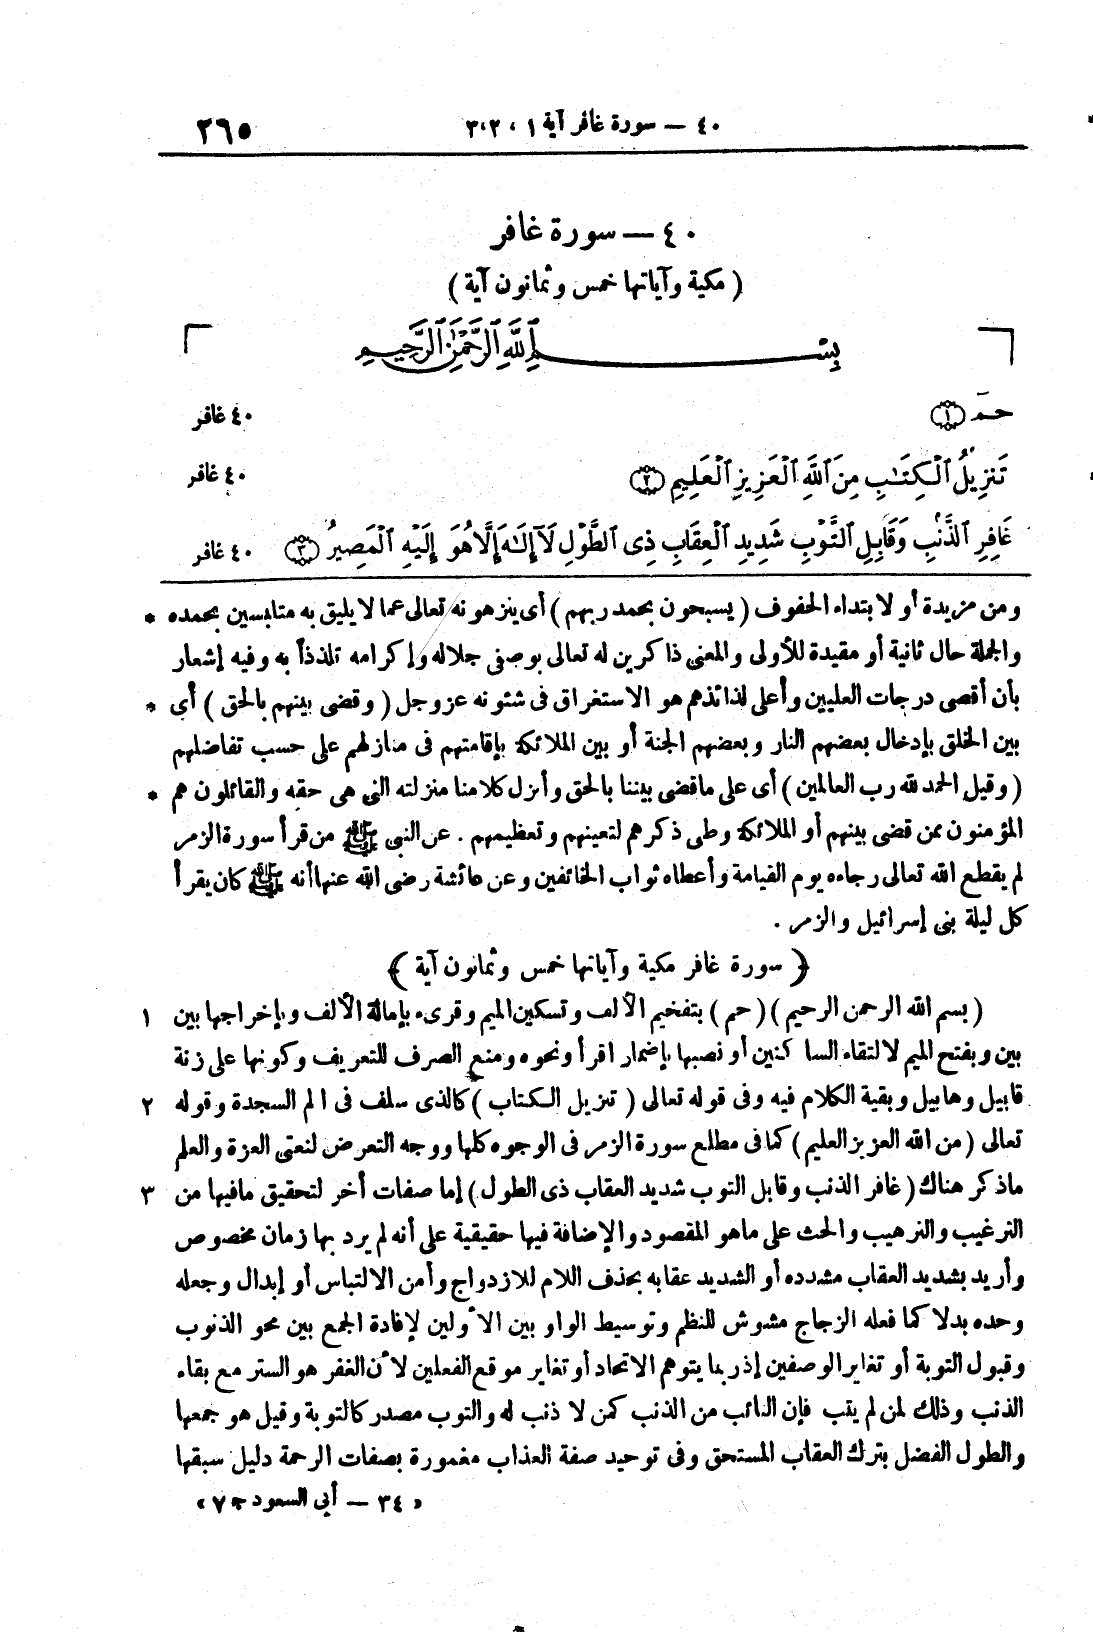 ٤٠ — سورة غافر آية ١ ، ٢،٣
٢٦٥
٤٠ — سورة غافر
( مكية وآياتها خمس وثمانون آية )
بِسْمِ ٱللَّهِ ٱلرَّحْمَٰنِ ٱلرَّحِيمِ
حمٓ ١ ٤٠ غافر
تَنزِيلُ ٱلْكِتَٰبِ مِنَ ٱللَّهِ ٱلْعَزِيزِ ٱلْعَلِيمِ ٢ ٤٠ غافر
غَافِرِ ٱلذَّنۢبِ وَقَابِلِ ٱلتَّوْبِ شَدِيدِ ٱلْعِقَابِ ذِى ٱلطَّوْلِ لَآ إِلَٰهَ إِلَّا هُوَ إِلَيْهِ ٱلْمَصِيرُ ٣ ٤٠ غافر
ومن مزيدة أو لابتداء الحفوف ( يسبحون بحمد ربهم ) أى ينزهونه تعالى عما لا يليق به متلبسين بحمده *
والجملة حال ثانية أو مقيدة للأولى والمعنى ذاكرين له تعالى بوصفى جلاله وإكرامه تلذذاً به وفيه إشعار
بأن أقصى درجات العليين وأعلى لذائذهم هو الاستغراق فى شئونه عز وجل ( وقضى بينهم بالحق ) أى *
بين الخلق بإدخال بعضهم النار وبعضهم الجنة أو بين الملائكة بإقامتهم فى منازلهم على حسب تفاضلهم
( وقيل الحمد لله رب العالمين ) أى على ما قضى بيننا بالحق وأنزل كلامنا منزلته التى هى حقه والقائلون هم *
المؤمنون ممن قضى بينهم أو الملائكة وطى ذكرهم لتعينهم وتعظيمهم . عن النبى ﷺ من قرأ سورة الزمر
لم يقطع الله تعالى رجاءه يوم القيامة وأعطاه ثواب الخائفين وعن عائشة رضى الله عنها أنه ﷺ كان يقرأ
كل ليلة بنى إسرائيل والزمر .
﴿ سورة غافر مكية وآياتها خمس وثمانون آية ﴾
( بسم الله الرحمن الرحيم ) ( حم ) بتفخيم الألف وتسكين الميم وقرىء بإمالة الألف وبإخراجها بين ١
بين وبفتح الميم لالتقاء الساكنين أو نصبها بإضمار اقرأ ونحوه ومنع الصرف للتعريف وكونها على زنة
قابيل وهابيل وبقية الكلام فيه وفى قوله تعالى ( تنزيل الكتاب ) كالذى سلف فى الم السجدة وقوله ٢
تعالى ( من الله العزيز العليم ) كما فى مطلع سورة الزمر فى الوجوه كلها ووجه التعرض لنعتى العزة والعلم
ما ذكر هناك ( غافر الذنب وقابل التوب شديد العقاب ذى الطول ) إما صفات أخر لتحقيق ما فيها من ٣
الترغيب والترهيب والحث على ماهو المقصود والإضافة فيها حقيقية على أنه لم يرد بها زمان مخصوص
وأريد بشديد العقاب مشدده أو الشديد عقابه بحذف اللام للازدواج وأمن الالتباس أو إبدال وجعله
وحده بدلا كما فعله الزجاج مشوش للنظم وتوسيط الواو بين الأولين لإفادة الجمع بين محو الذنوب
وقبول التوبة أو تغاير الوصفين إذ ربما يتوهم الاتحاد أو تغاير موقع الفعلين لأن الغفر هو الستر مع بقاء
الذنب وذلك لمن لم يتب فإن التائب من الذنب كمن لا ذنب له والتوب مصدر كالتوبة وقيل هو جمعها
والطول الفضل بترك العقاب المستحق وفى توحيد صفة العذاب مغمورة بصفات الرحمة دليل سبقها
« ٣٤ — أبى السعود ج ٧ »